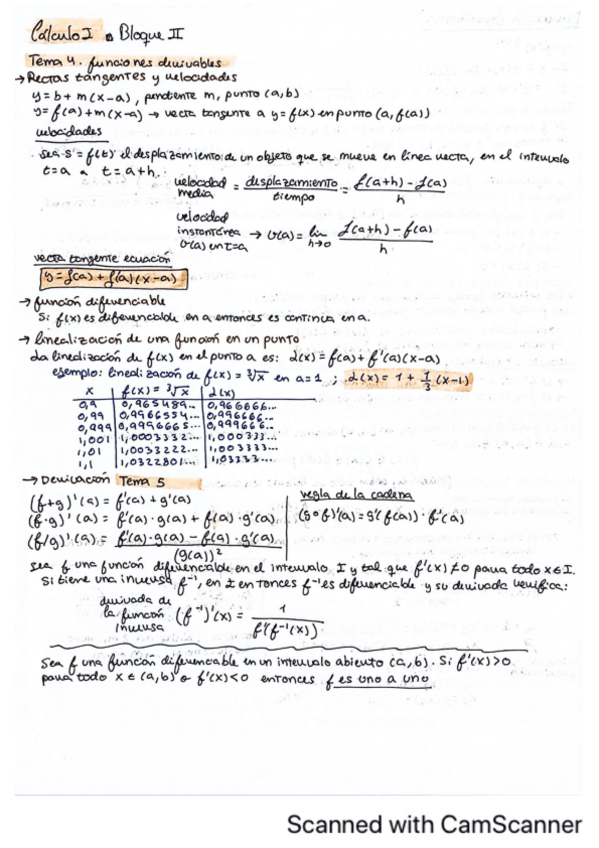 Cálculo I • Bloque II
Tema 4. funciones derivables
→ Rectas tangentes y velocidades
y = b + m(x-a), pendiente m, punto (a,b)
y = f(a) + m(x-a) → recta tangente a y = f(x) en punto (a, f(a))
velocidades
Sea s = f(t) el desplazamiento de un objeto que se mueve en línea recta, en el intervalo
t=a a t=a+h.
velocidad media = desplazamiento / tiempo = f(a+h) - f(a) / h
velocidad instantánea v(a) en t=a → v(a) = lim h→0 f(a+h) - f(a) / h
recta tangente ecuación
y = f(a) + f(a)(x-a)
→ función diferenciable
Si f(x) es diferenciable en a entonces es continua en a.
→ linealización de una función en un punto
La linealización de f(x) en el punto a es: L(x) = f(a) + f'(a)(x-a)
ejemplo: linealización de f(x) = ∛x en a=1 ; L(x) = 1 + 1/3 (x-1)
x | f(x) = ∛x | L(x)
0,9 | 0,965489... | 0,966666...
0,99 | 0,9966554... | 0,996666...
0,999 | 0,9996665... | 0,999666..
1,001 | 1,0003332... | 1,000333...
1,01 | 1,0033222... | 1,003333...
1,1 | 1,0322801... | 1,03333...
→ Derivación Tema 5
(f+g)'(a) = f'(a) + g'(a)
(f·g)'(a) = f'(a)·g(a) + f(a)·g'(a)
(f/g)'(a) = f'(a)·g(a) - f(a)·g'(a) / (g(a))²
regla de la cadena
(g∘f)'(a) = g'(f(a))·f'(a)
Sea f una función diferenciable en el intervalo I y tal que f'(x) ≠ 0 para todo x∈I.
Si tiene una inversa f⁻¹, en I entonces f⁻¹ es diferenciable y su derivada verifica:
derivada de la función inversa (f⁻¹)'(x) = 1 / f'(f⁻¹(x))
Sea f una función diferenciable en un intervalo abierto (a,b). Si f'(x)>0
para todo x ∈ (a,b) o f'(x)<0 entonces f es uno a uno.
Scanned with CamScanner